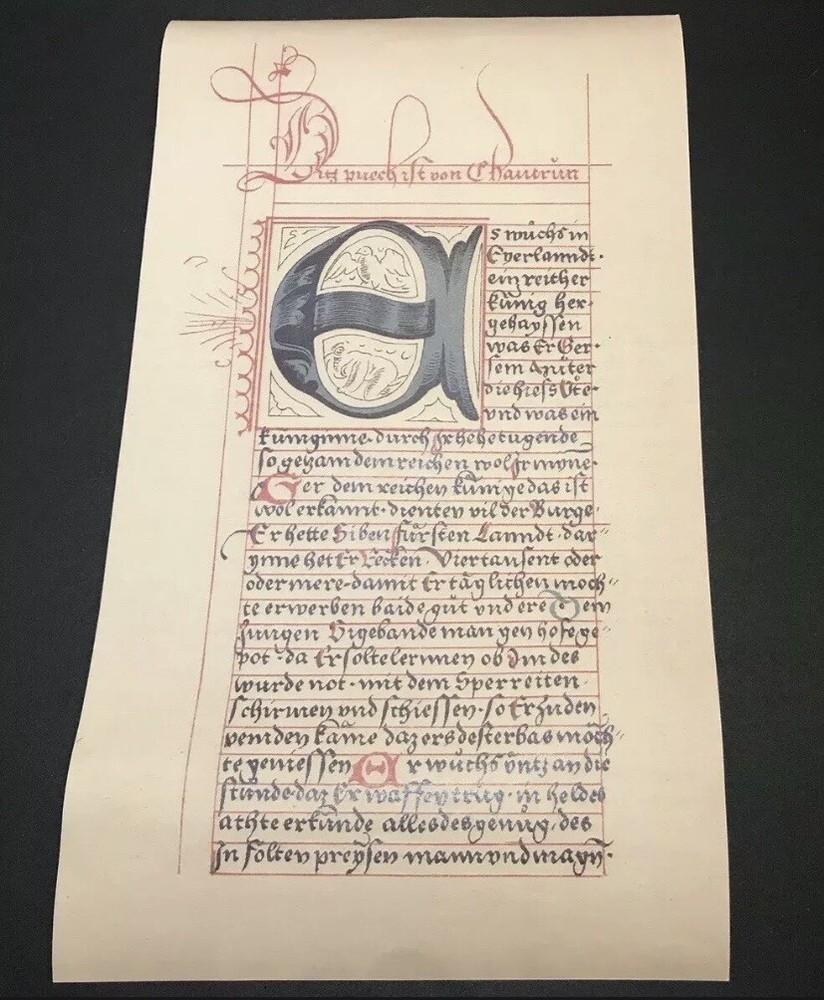 Ditz puech ist von Chautrun
Es wůchs in
Eyerlanndt·
ein reicher
kúnig her·
gehayssen
was Er Ger·
sein můter
die hiess Ůte·
vnd was ein
kunginne· durch Jr hohe tugende
so gezam dem reichen wol Jr mynne·
Ger dem reichen kunige das ist
wol erkannt· dienten vil der Burge·
Er hette Siben fúrsten Lanndt· dar
ynne het Er Recken· Viertausent oder
oder mere· damit Er täglichen moch
te erwerben baide gůt vnd ere Dem
Jungen Sigebande man gen hofe ge
pot· da Er solte lernnen ob Im des
wurde not· mit dem Sper reiten
schirmen vnd schiessen· so Er zu den
veinden käme daz er des dester bas möch
te geniessen Er wůchs vntz an die
stunde· daz Er waffen trůg· in heldes
achte er kunde alles des genůg· des
In solten preysen mann vnd magn·